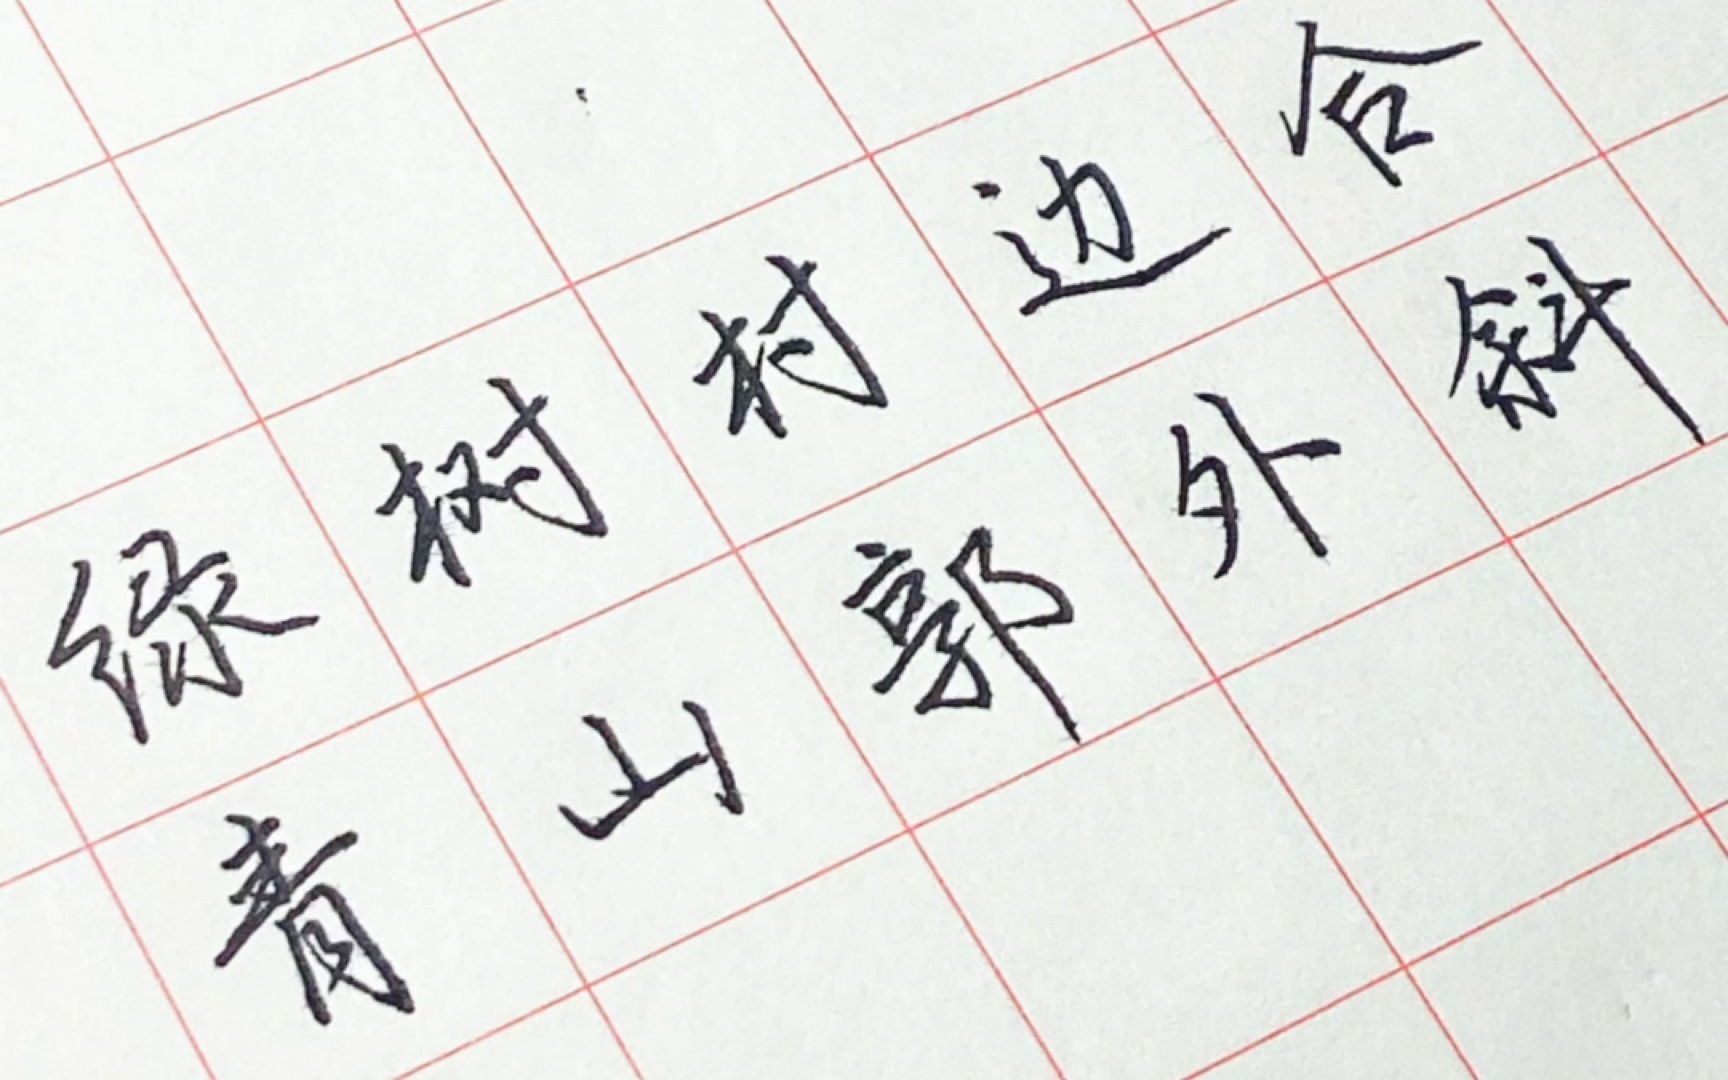 绿树村边合
青山郭外斜